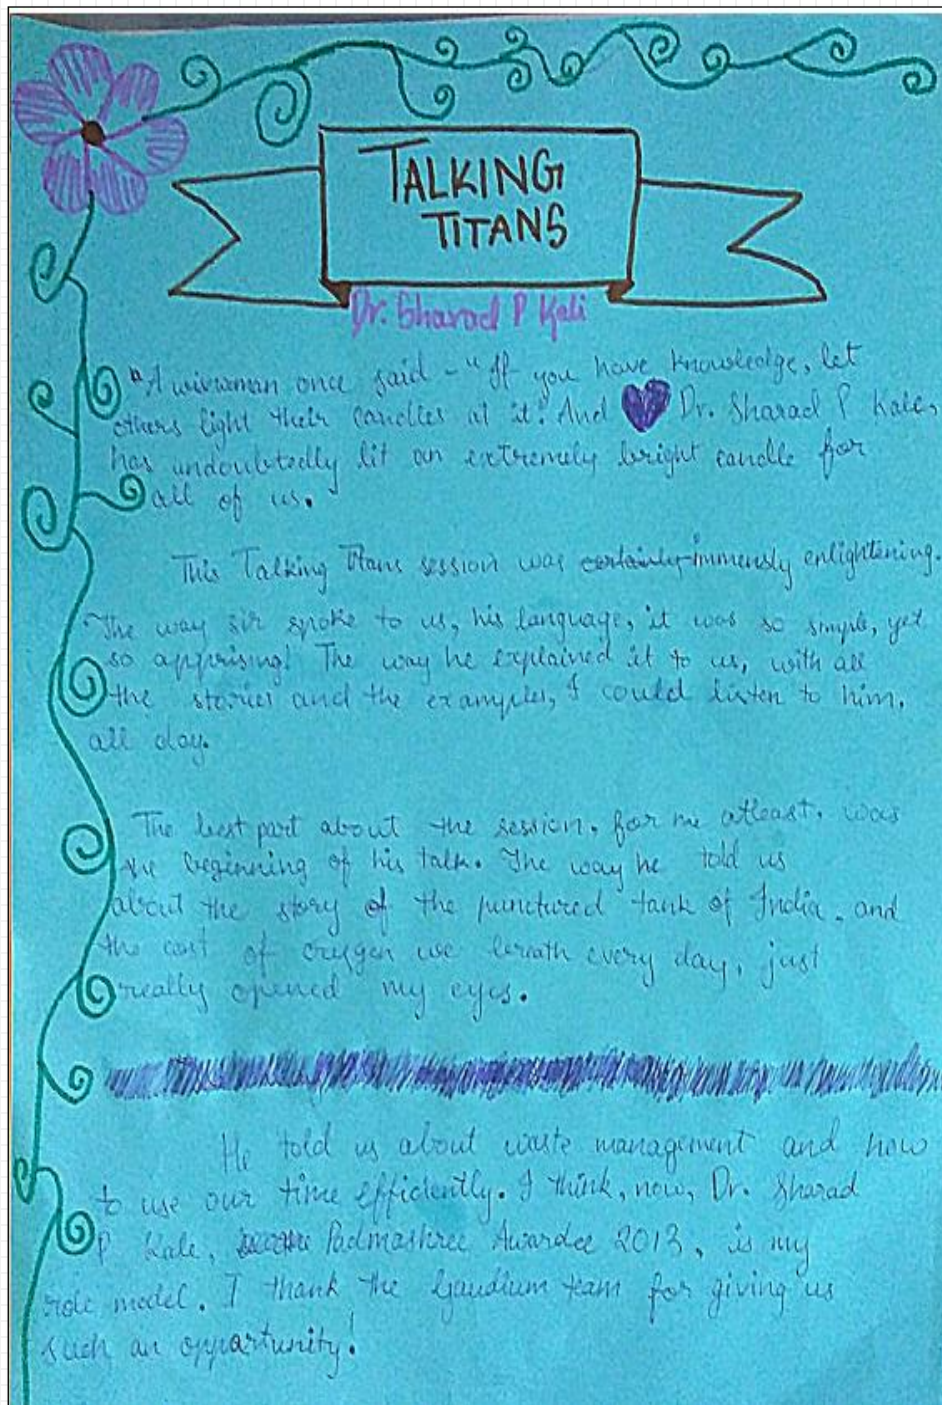 TALKING
TITANS
Dr. Sharad P Kali
"A wiseman once said - "If you have knowledge, let
others light their candles at it. And Dr. Sharad P Kale,
has undoubtedly lit an extremely bright candle for
all of us.
This Talking Titans session was certainly immensly enlightening.
The way sir spoke to us, his language, it was so simple, yet
so apprising! The way he explained it to us, with all
the stories and the examples, I could listen to him,
all day.
The best part about the session, for me atleast, was
the beginning of his talk. The way he told us
about the story of the punctured tank of India, and
the cost of oxygen we breath every day, just
really opened my eyes.
He told us about waste management and how
to use our time efficiently. I think, now, Dr. Sharad
P Kale, Padmashree Awardee 2013, is my
role model. I thank the Gaudium team for giving us
such an opportunity!